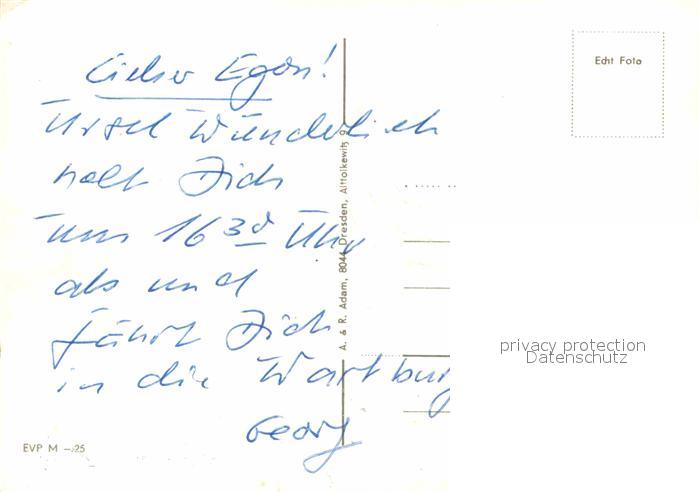 Lieber Egon!
Ursel Wunderlich
holt Dich
um 16 30 Uhr
ab und
fährt Dich
in die Wartburg
Georg
Echt Foto
A. & R. Adam, 8044 Dresden, Alttolkewitz 9
EVP M -.25
privacy protection
Datenschutz